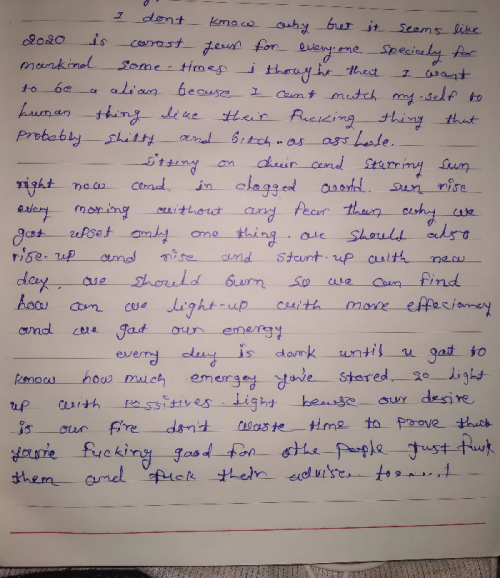 I dont know why but it seems like
2020 is worst year for everyone specialy for
mankind some-times i thought that I want
to be a alian becuse I cant match my-self to
human thing like their fucking thing that
probably shitty and bitch-as asshole.
Sitting on chair and starring sun
right now and in clogged world. sun rise
every moring without any fear then why we
got upset only one thing. we should also
rise-up and rise and start-up with new
day. we should burn so we can find
how can we light-up with more effeciancy
and we gat our energy
every day is dark until u gat to
know how much energey you've stored. so light
up with possitives light becuse our desire
is our fire don't waste time to prove that
you're fucking good for othe people just fuck
them and fuck their advise too....!